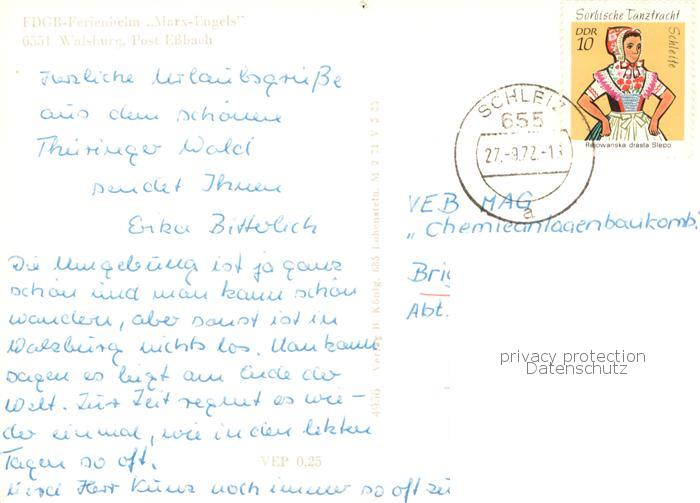 FDGB-Ferienheim „Marx-Engels"
6551 Walsburg, Post Eßbach
Herzliche Urlaubsgrüße
aus dem schönen
Thüringer Wald
sendet Ihnen
Erika Bitterlich
Die Umgebung ist ja ganz
schön und man kann schön
wandern, aber sonst ist in
Walsburg nichts los. Man kann
sagen es liegt am Ende der
Welt. Zur Zeit regnet es wie-
der einmal, wie in den letzten
Tagen so oft.
Herr Kunz noch immer so oft zu
VEP 0,25
4956 Verlag B. König, 685 Lobenstein. M 2 71 V 5 25
Sorbische Tanztracht
DDR
10
Schleife
Rejowanska drasta Slepo
SCHLEIZ
655
27.-9.72.-13
a
VEB MAG
„Chemieanlagenbaukomb.
Brig
Abt.
privacy protection
Datenschutz